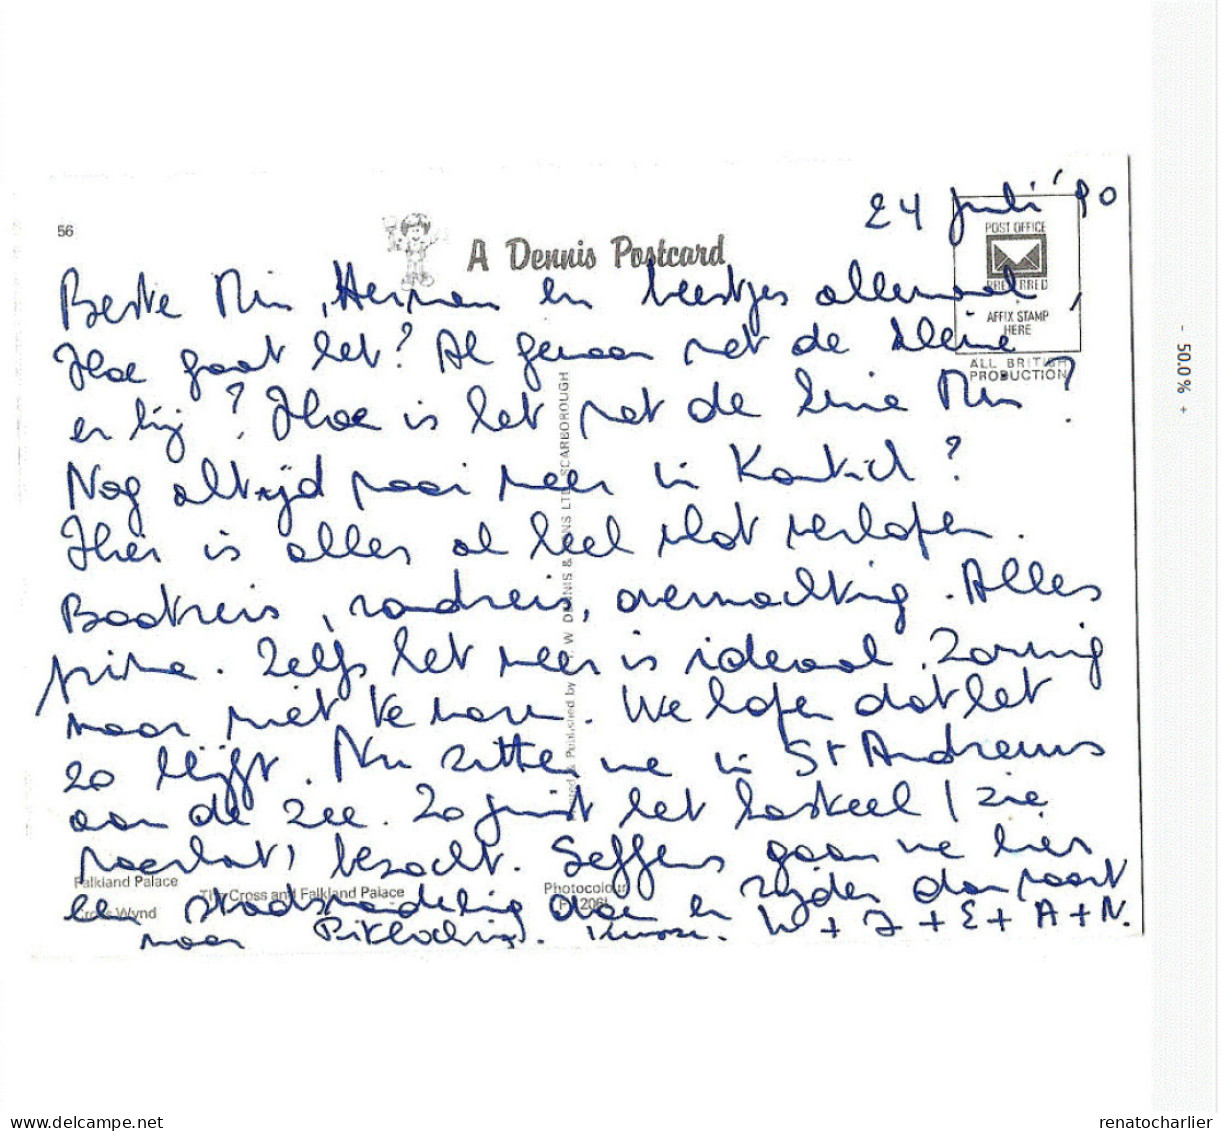 24 juli '90
56
A Dennis Postcard
POST OFFICE
PREFERRED
AFFIX STAMP
HERE
ALL BRITISH
PRODUCTION
Beste Min, Herman en beestjes allemaal,
Hoe gaat het? Al gewoon met de kleine
en hij? Hoe is het met de Min?
Nog altijd mooi weer in Kontich?
Hier is alles al heel vlot verlopen.
Bootreis, rondreis, overnachting. Alles
prima. Zelfs het weer is ideaal. Zonnig
maar niet te warm. We hopen dat het
zo blijft. Nu zitten we in St Andrews
aan de zee. Zo juist het kasteel (zie
voorkant) bezocht. Seffens gaan we hier
een stadswandeling doen en rijden dan voort
naar Pitlochry. W + J + E + A + N.
Printed & Published by E.T.W. DENNIS & SONS LTD. SCARBOROUGH
Falkland Palace
The Cross and Falkland Palace
Cross Wynd
Photocolour
- 50.0 % +
renatocharlier